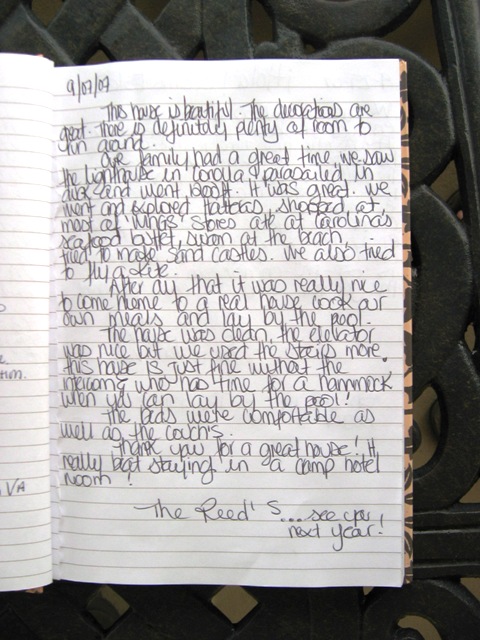 9/07/07
This house is beautiful. The decorations are
great. There is definitely plenty of room to
run around.
Our family had a great time, we saw
the lighthouse in Corolla, parasailed in
duck and went
It was great. we
went and explored Hatteras, shopped at
most of Wings' stores ate at Carolina's
seafood buffet, swam at the beach,
tried to make sand castles. We also tried
to fly a kite.
After day that it was really nice
to come home to a real house cook our
own meals and lay by the pool.
The house was clean, the elevator
was nice but we used the stairs more.
this house is just fine without the
intercoms, who has time for a hammock
when you can lay by the pool!
The beds were comfortable as
well as the couch's.
Thank you for a great house! It
really beat staying in a camp hotel
room!
The Reed's
...see you
next year!
VA